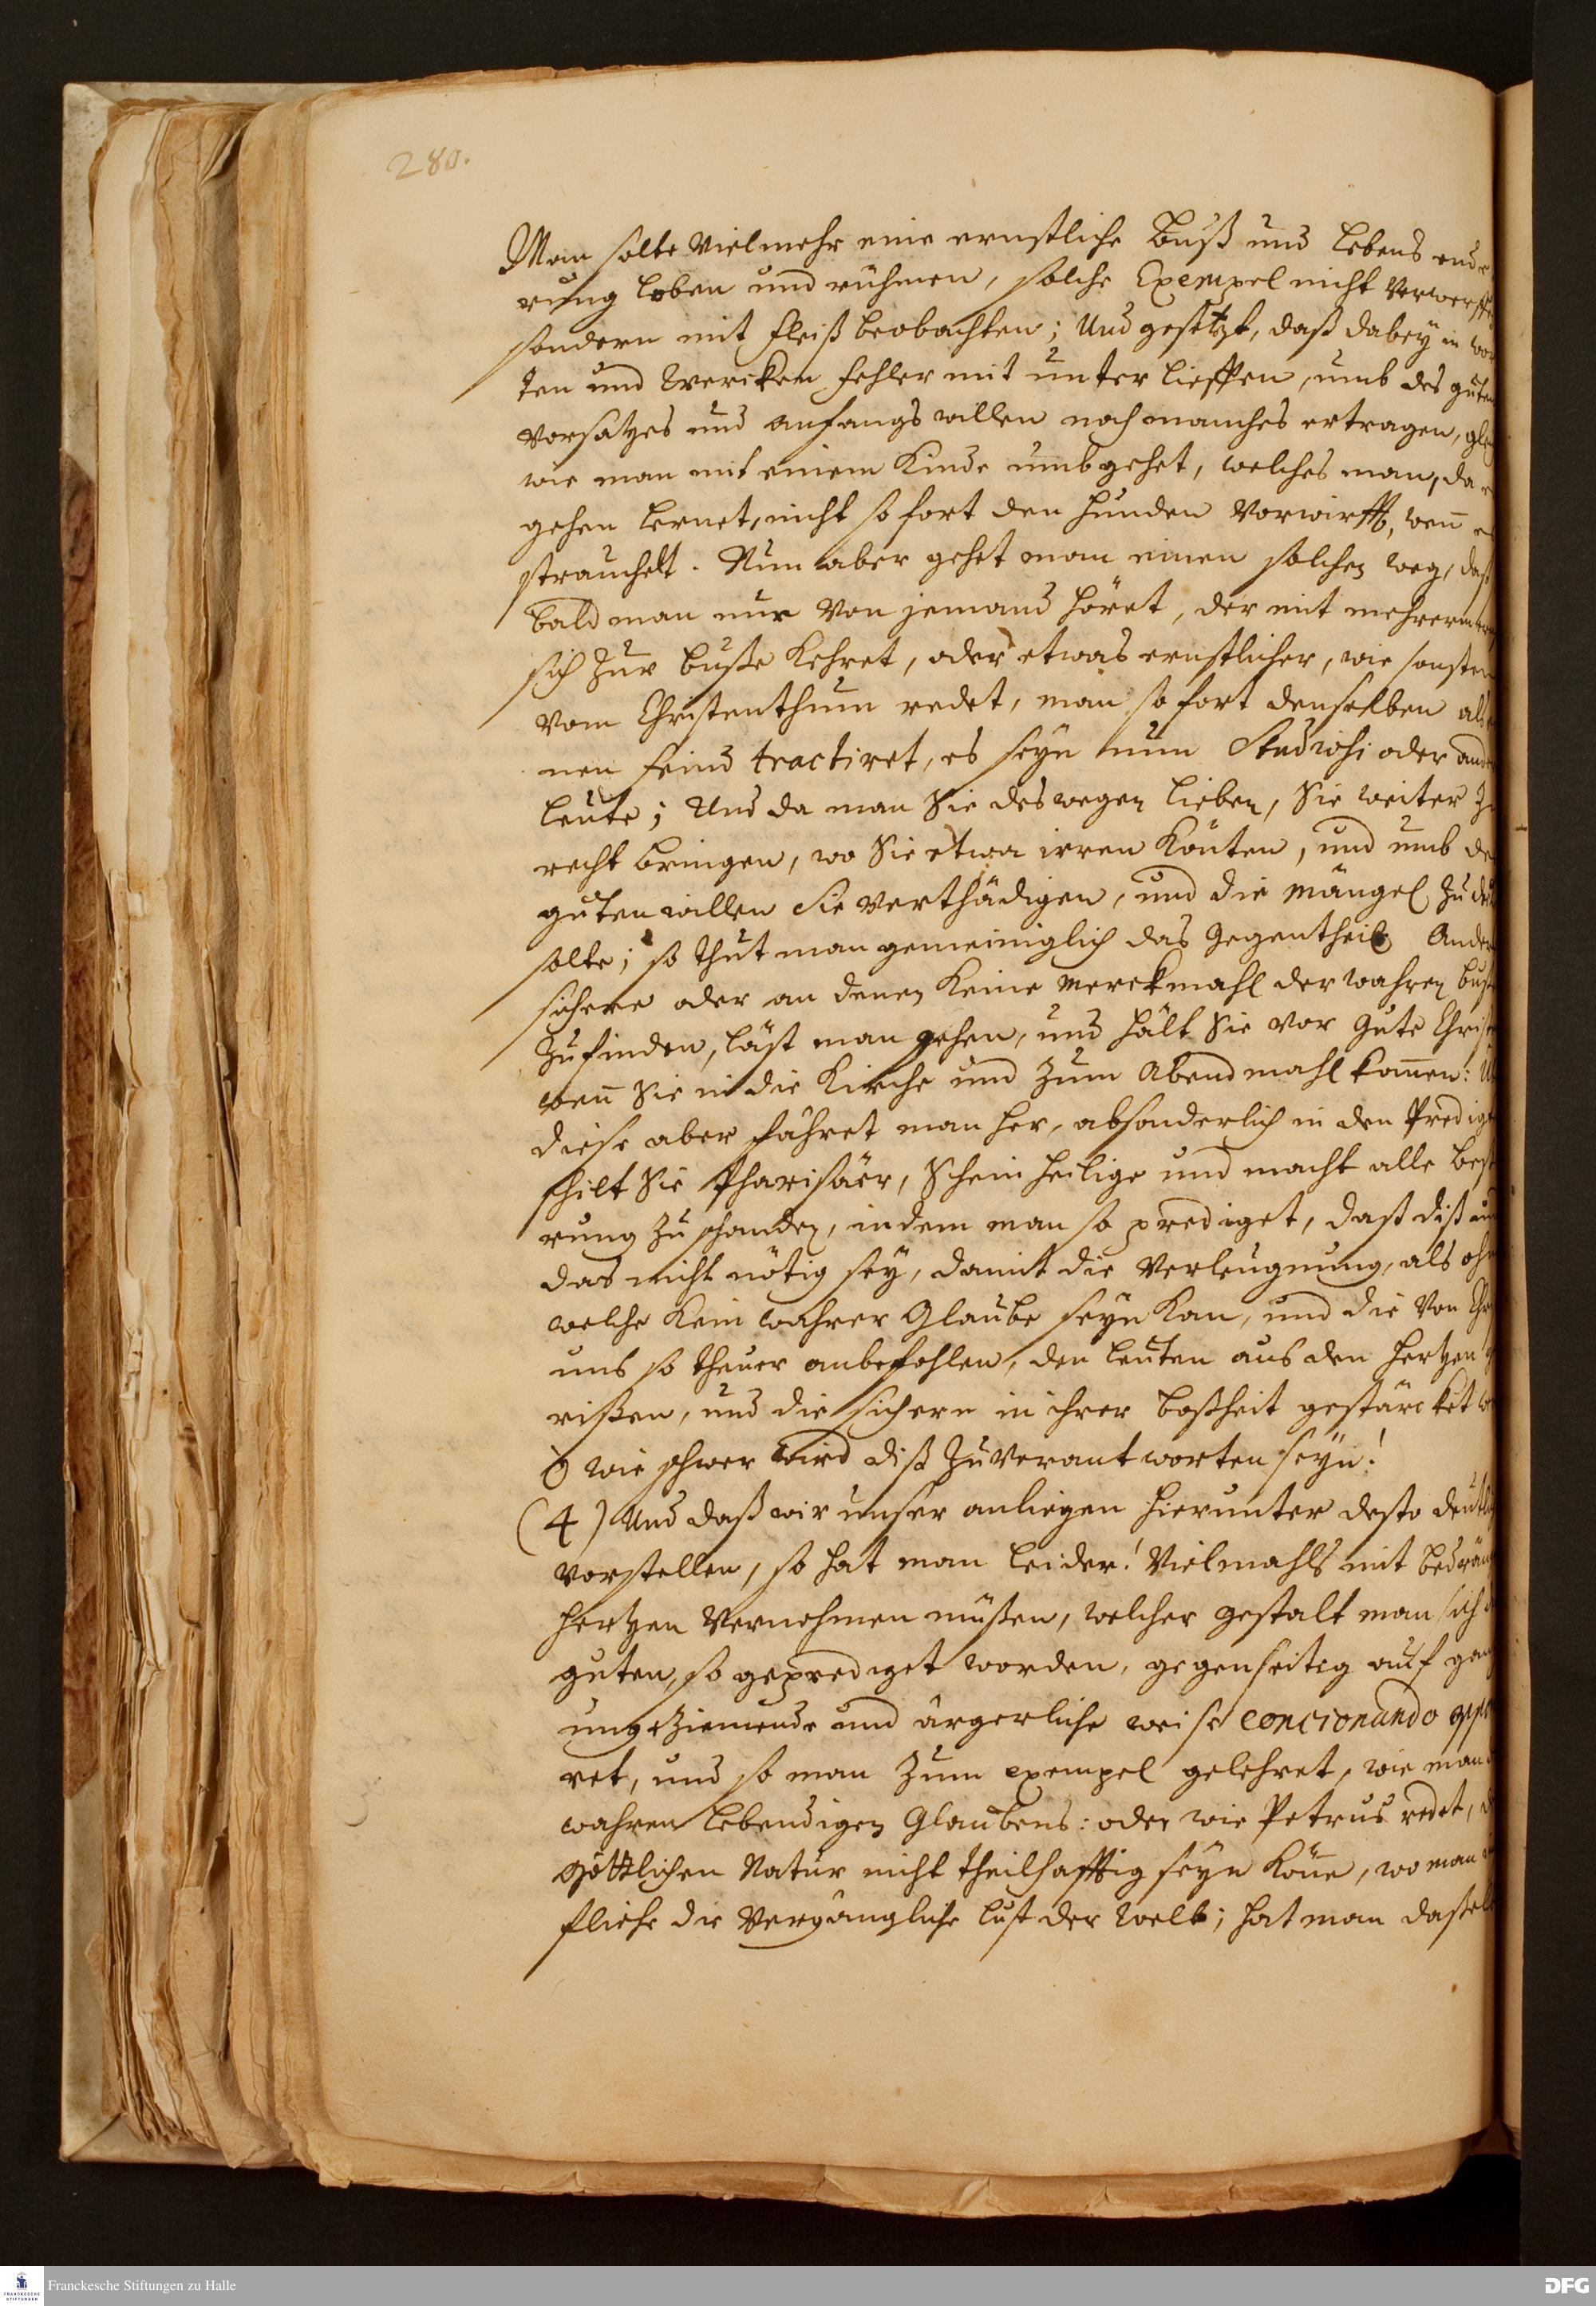 280.
Man solte Vielmehr eine ernstliche Buß und lebens ende
rung loben und rühmen, solche Exempel nicht Verwerffen
sondern mit fleiß beobachten; Und gesetzt, daß dabey in wor
ten und Wercken fehler mit unter lieffen, umb des guten
Vorsatzes und anfangs willen noch manches ertragen, glei
wie man mit einem Kinde umbgehet, welches man, da e
gehen lernet, nicht so fort den Hunden Vorwirfft, wen̄ e
strauchelt. Nun aber gehet man einen solchen weg, daß
bald man nur Von jemand höret, der mit mehrerm ern
sich Zur buße Kehret, oder etwas ernstlicher, wie sonsten
Vom Christenthum redet, man so fort denselben als e
nen feind tractiret, es seyn nun Studiosi oder ande
leute; Und da man Sie deswegen lieben, Sie weiter Zu
recht bringen, wo Sie etwa irren Könten, und umb de
guten willen Sie Verthädigen, und die Mängel Zu de
solte; so thut man gemeiniglich das Gegentheil. Ande
sichere oder an denen Keine Merckmahl der wahren buß
Zufinden, läst man gehen, und hält Sie Vor Gute Christ
wen̄ Sie in die Kirche und Zum Abendmahl kom̄en: Ü
diese aber fähret man her, absonderlich in den Predigt
schilt Sie Pharisäer, Schein heilige und macht alle beße
rung Zu schanden, indem man so prediget, daß diß und
das nicht nötig sey, damit die Verleugnung, als ohn
welche Kein wahrer Glaube seyn Kan, und die Von Chr
uns so theuer anbefohlen, den leuten aus den Hertzen g
rißen, und die sichern in ihrer boßheit gestärcket w
O wie schwer wird diß ZuVerantworten seyn!
(4) Und daß wir unser anliegen hierunter desto deutli
Vorstellen, so hat man leider! Vielmahls mit bedräng
Hertzen Vernehmen müßen, welcher gestalt man sich d
guten, so geprediget worden, gegenseitig auf gan
ungeziemende und ärgerliche weise concionando oppo
ret, und so man Zum exempel gelehret, wie man d
wahren lebendigen Glaubens: oder wie Petrus redet, d
Göttlichen Natur nicht theilhafftig seyn Kön̄e, wo man
fliehe die Vergängliche lust der Welt; hat man daßelb
Franckesche Stiftungen zu Halle
FRANCKESCHE STIFTUNGEN
DFG